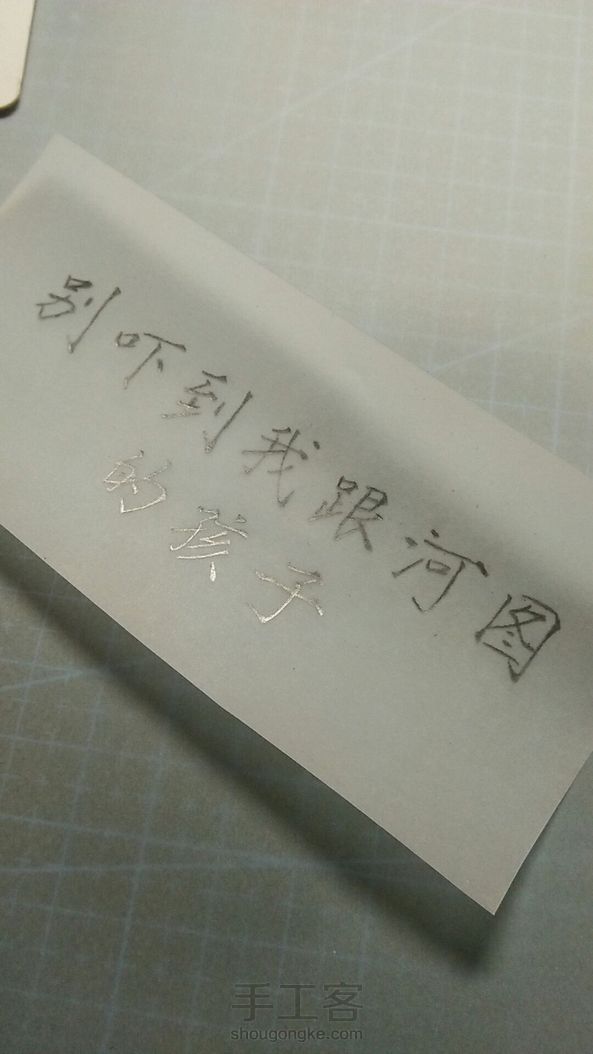 别吓到我跟河图
的孩子
手工客
shougongke.com